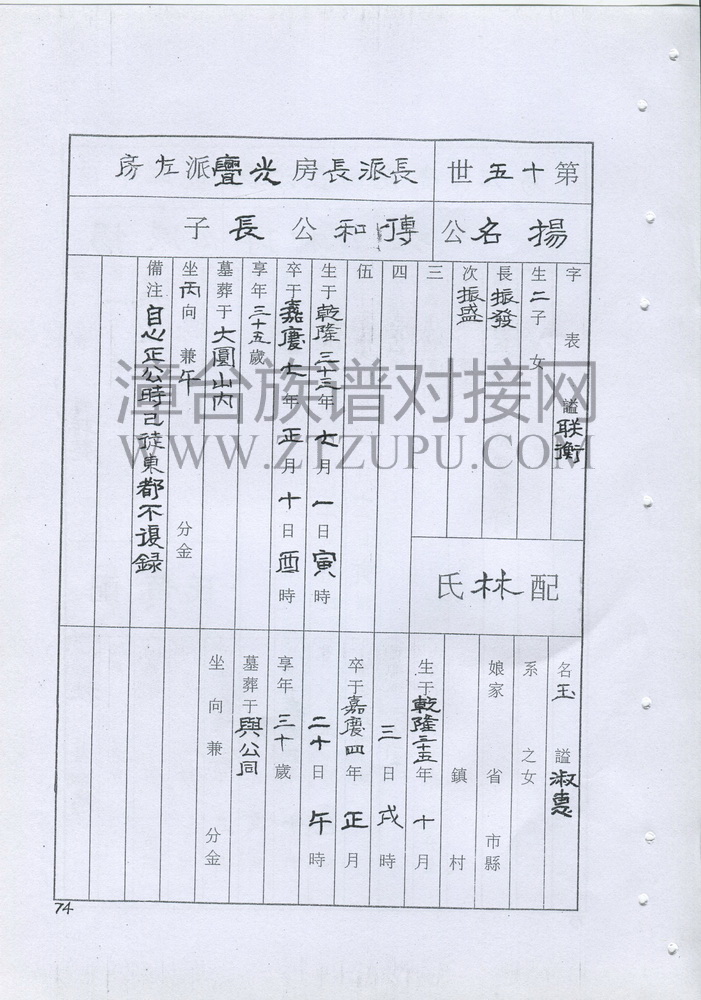 第十五世
長派長房光疊派左房
揚名公
傳和公長子
字 表 諡聯衡
生二子女
長振發
次振盛
三
四
伍
生于乾隆三十三年七月一日寅時
卒于嘉慶七年正月十日酉時
享年三十五歲
墓葬于大圓山內
坐丙向兼午 分金
備注自心正公時已徙東都不復録
配林氏
名玉 諡淑惠
系 之女
娘家 省 市縣
鎮 村
生于乾隆三十五年十月
三日戌時
卒于嘉慶四年正月
二十日午時
享年三十歲
墓葬于與公同
坐 向兼 分金
74
漳台族谱对接网
WWW.ZTZUPU.COM